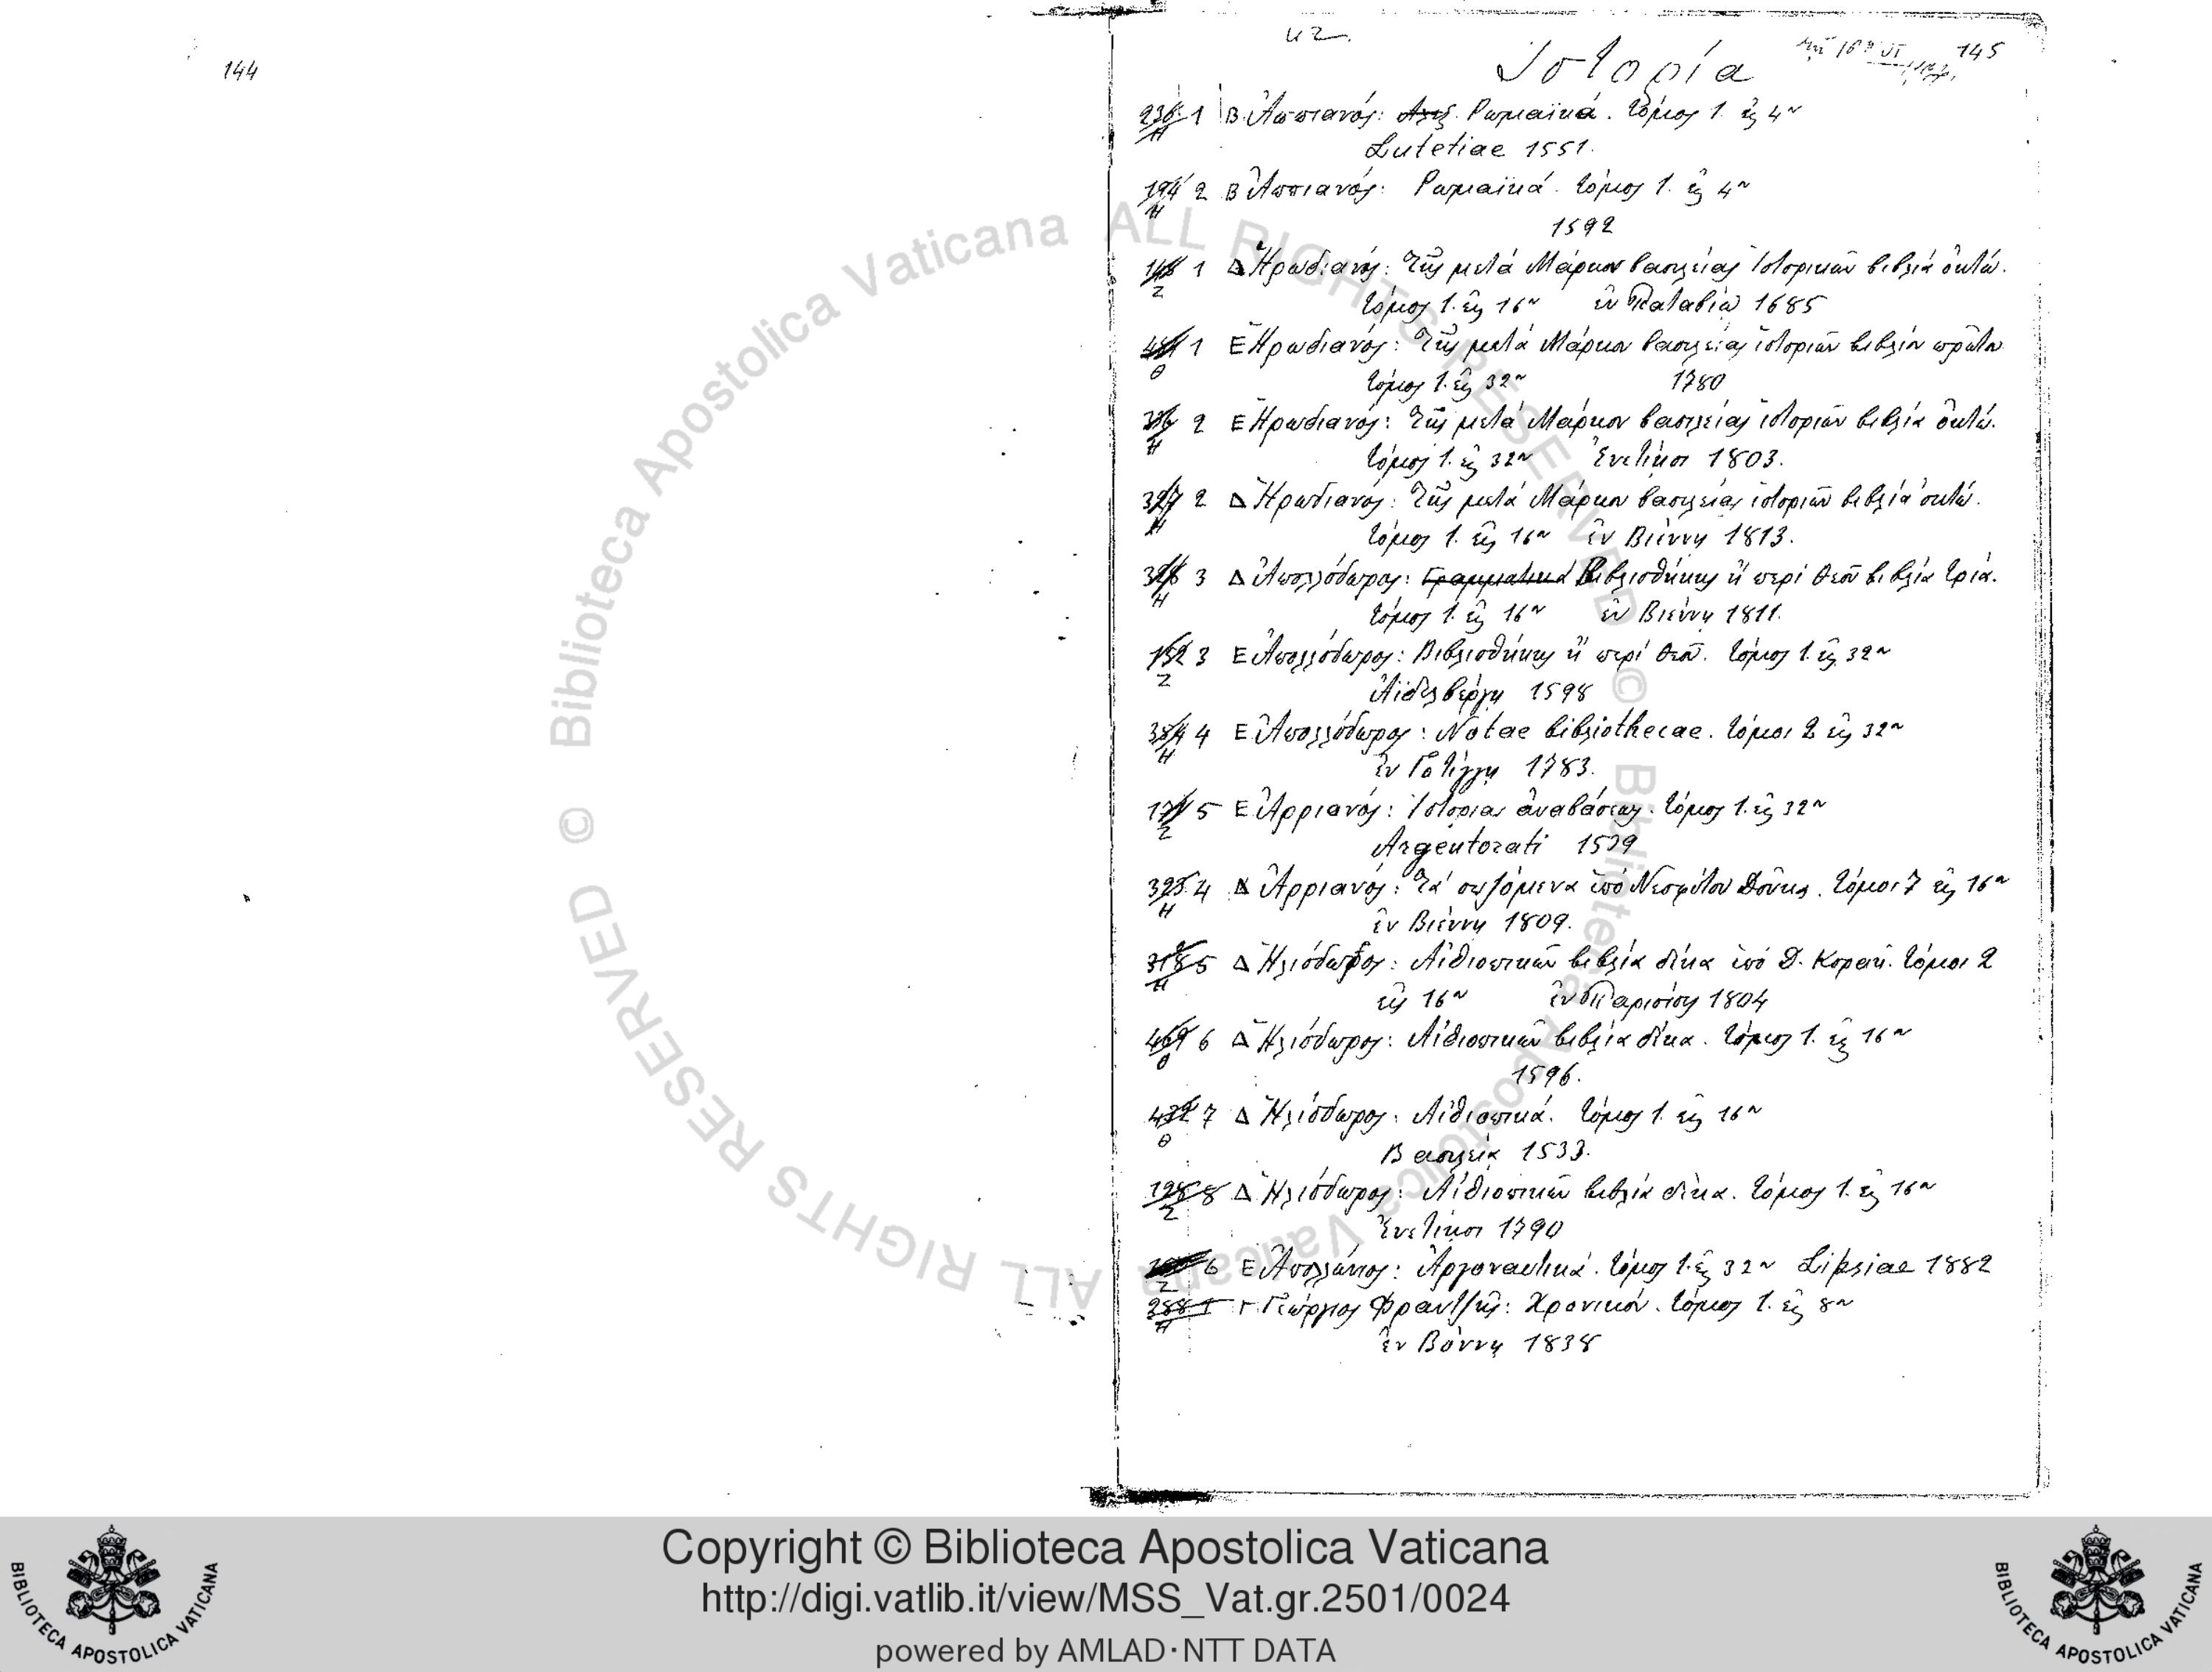 144
145
Ἱστορία
1 Β Ἀππιανός: Ρωμαϊκά. τόμος 1. εἰς 4ον
Lutetiae 1551.
2 Β Ἀππιανός: Ρωμαϊκά. τόμος 1. εἰς 4ον
1592
1 Δ Ἡρωδιανός: Τῆς μετά Μάρκον βασιλείας Ἱστορικῶν βιβλία ὀκτώ.
τόμος 1. εἰς 16ον ἐν Παταβίῳ 1685
1 Ε Ἡρωδιανός: Τῆς μετά Μάρκον βασιλείας ἱστοριῶν βιβλίον πρῶτον
τόμος 1. εἰς 32ον 1780
2 Ε Ἡρωδιανός: Τῆς μετά Μάρκον βασιλείας ἱστοριῶν βιβλία ὀκτώ.
τόμος 1. εἰς 32ον Ἐνετίησι 1803.
327 2 Δ Ἡρωδιανός: Τῆς μετά Μάρκον βασιλείας ἱστοριῶν βιβλία ὀκτώ.
Η τόμος 1. εἰς 16ον ἐν Βιέννῃ 1813.
3 Δ Ἀπολλόδωρος: Γραμματικά Βιβλιοθήκης ἤ περί θεῶν βιβλία τρία.
Η τόμος 1. εἰς 16ον ἐν Βιέννῃ 1811.
152 3 Ε Ἀπολλόδωρος: Βιβλιοθήκης ἤ περί θεῶν. τόμος 1. εἰς 32ον
Ζ Ἀϊδελβέργῃ 1598
384 4 Ε Ἀπολλόδωρος: Notae bibliothecae. τόμοι 2 εἰς 32ον
Η ἐν Γοτίγγῃ 1783.
5 Ε Ἀρριανός: Ἱστορίας ἀναβάσεως. τόμος 1. εἰς 32ον
Ζ Argentorati 1539
325 4 Δ Ἀρριανός: Τά σωζόμενα ὑπό Νεοφύτου Δούκα. τόμοι 7 εἰς 16ον
Η ἐν Βιέννῃ 1809.
5 Δ Ἡλιόδωρος: Αἰθιοπικῶν βιβλία δέκα ὑπό Δ. Κοραῆ. τόμοι 2
Η εἰς 16ον ἐν Παρισίοις 1804
469 6 Δ Ἡλιόδωρος: Αἰθιοπικῶν βιβλία δέκα. τόμος 1. εἰς 16ον
θ 1596.
432 7 Δ Ἡλιόδωρος: Αἰθιοπικά. τόμος 1. εἰς 16ον
θ Βασιλείᾳ 1533.
198 8 Δ Ἡλιόδωρος: Αἰθιοπικῶν βιβλία δέκα. τόμος 1. εἰς 16ον
Ζ Ἐνετίησι 1790
6 Ε Ἀπολλώνιος: Ἀργοναυτικά. τόμος 1. εἰς 32ον Lipsiae 1882
Ζ
288 1 Γ Γεώργιος Φραντζῆς: Χρονικόν. τόμος 1. εἰς 8ον
Η ἐν Βόννῃ 1838
© Biblioteca Apostolica Vaticana ALL RIGHTS RESERVED © Biblioteca Apostolica Vaticana ALL RIGHTS RESERVED
Copyright © Biblioteca Apostolica Vaticana
http://digi.vatlib.it/view/MSS_Vat.gr.2501/0024
powered by AMLAD·NTT DATA
BIBLIOTECA APOSTOLICA VATICANA
BIBLIOTECA APOSTOLICA VATICANA